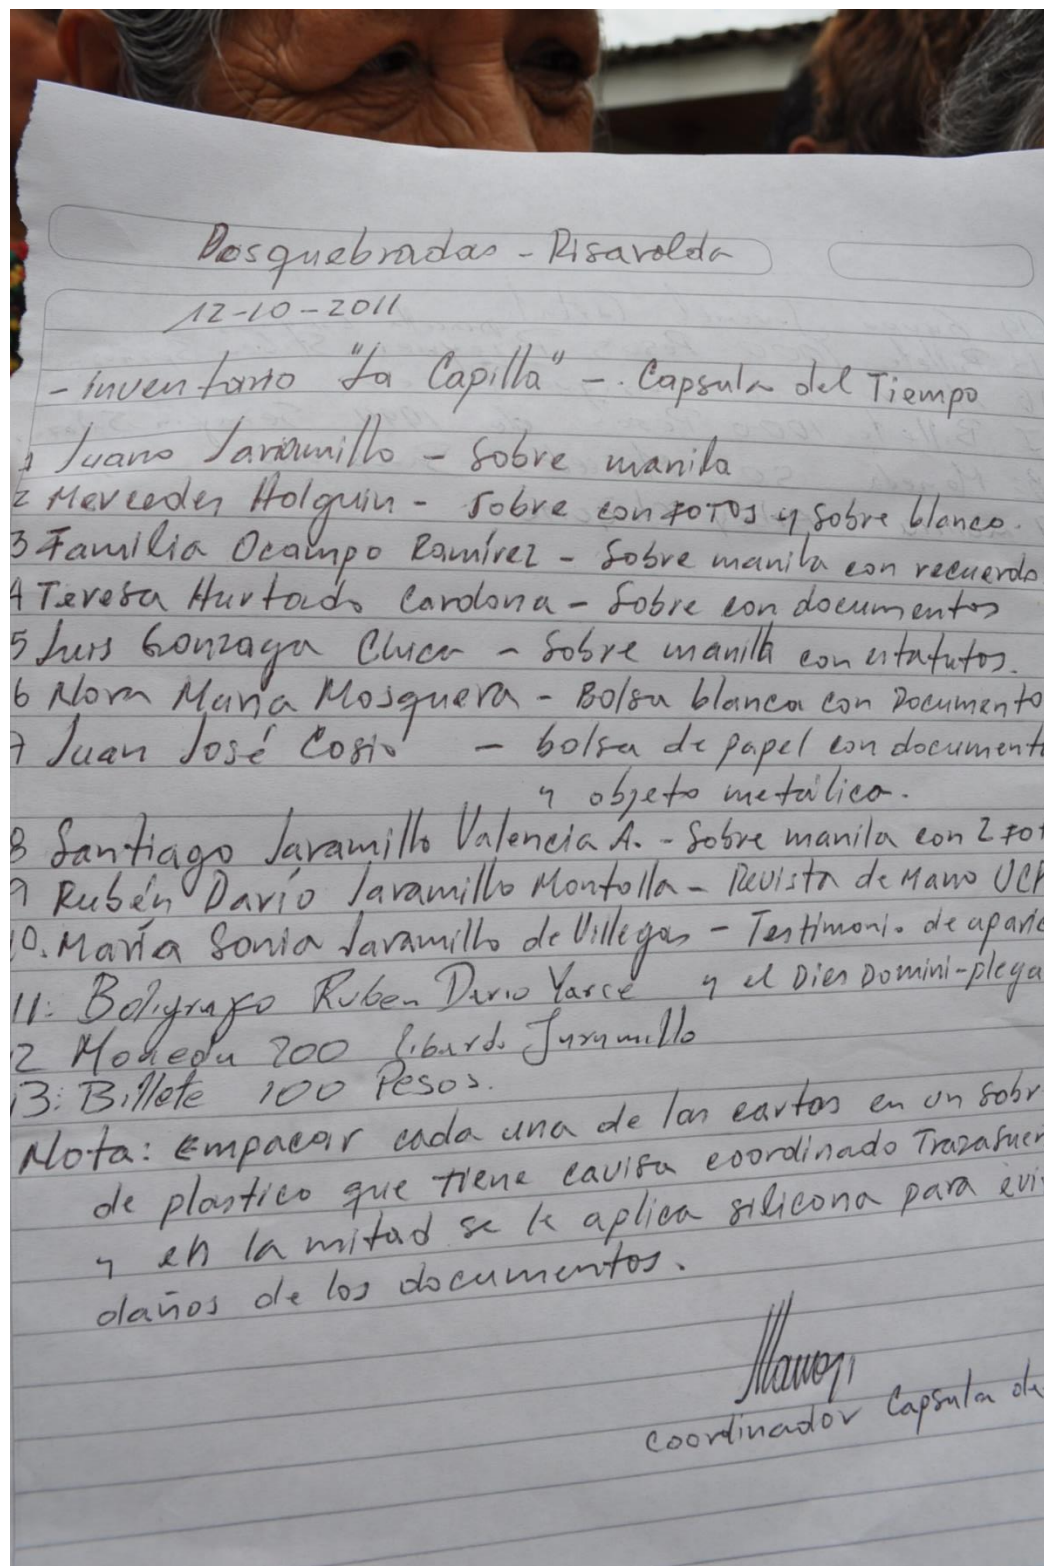 Dosquebradas - Risaralda
12-10-2011
- Inventario "La Capilla" - . Capsula del Tiempo
1 Juano Jaramillo - Sobre manila
2 Mercedes Holguin - Sobre con FOTOS y Sobre blanco.
3 Familia Ocampo Ramírez - Sobre manila con recuerdo
4 Teresa Hurtado Cardona - Sobre con documentos
5 Luis Gonzaga Chica - Sobre manila con estatutos.
6 Nora María Mosquera - Bolsa blanca con Documento
7 Juan José Cosio - bolsa de papel con document
y objeto metálico.
8 Santiago Jaramillo Valencia A. - Sobre manila con 2 FOT
9 Rubén Darío Jaramillo Montolla - Revista de Mano UCP
10. María Sonia Jaramillo de Villegas - Testimonio de aparic
y el Dies Domini-plega
11: Boligrafo Ruben Dario Yarce
12 Moneda 200 Libardo Jaramillo
13: Billete 100 Pesos.
Nota: Empacar cada una de las cartas en un sobr
de plastico que tiene cavisa coordinado Trazasuer
y en la mitad se le aplica silicona para evi
daños de los documentos.
coordinador Capsula de